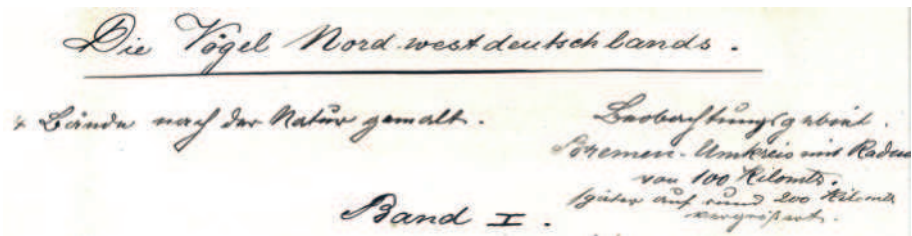 Die Vögel Nordwestdeutschlands.
Bände nach der Natur gemalt.
Beobachtungsgebiet.
Bremen-Umkreis mit Radius
von 100 Kilomtr.
später auf rund 200 Kilomtr
vergrößert.
Band I.